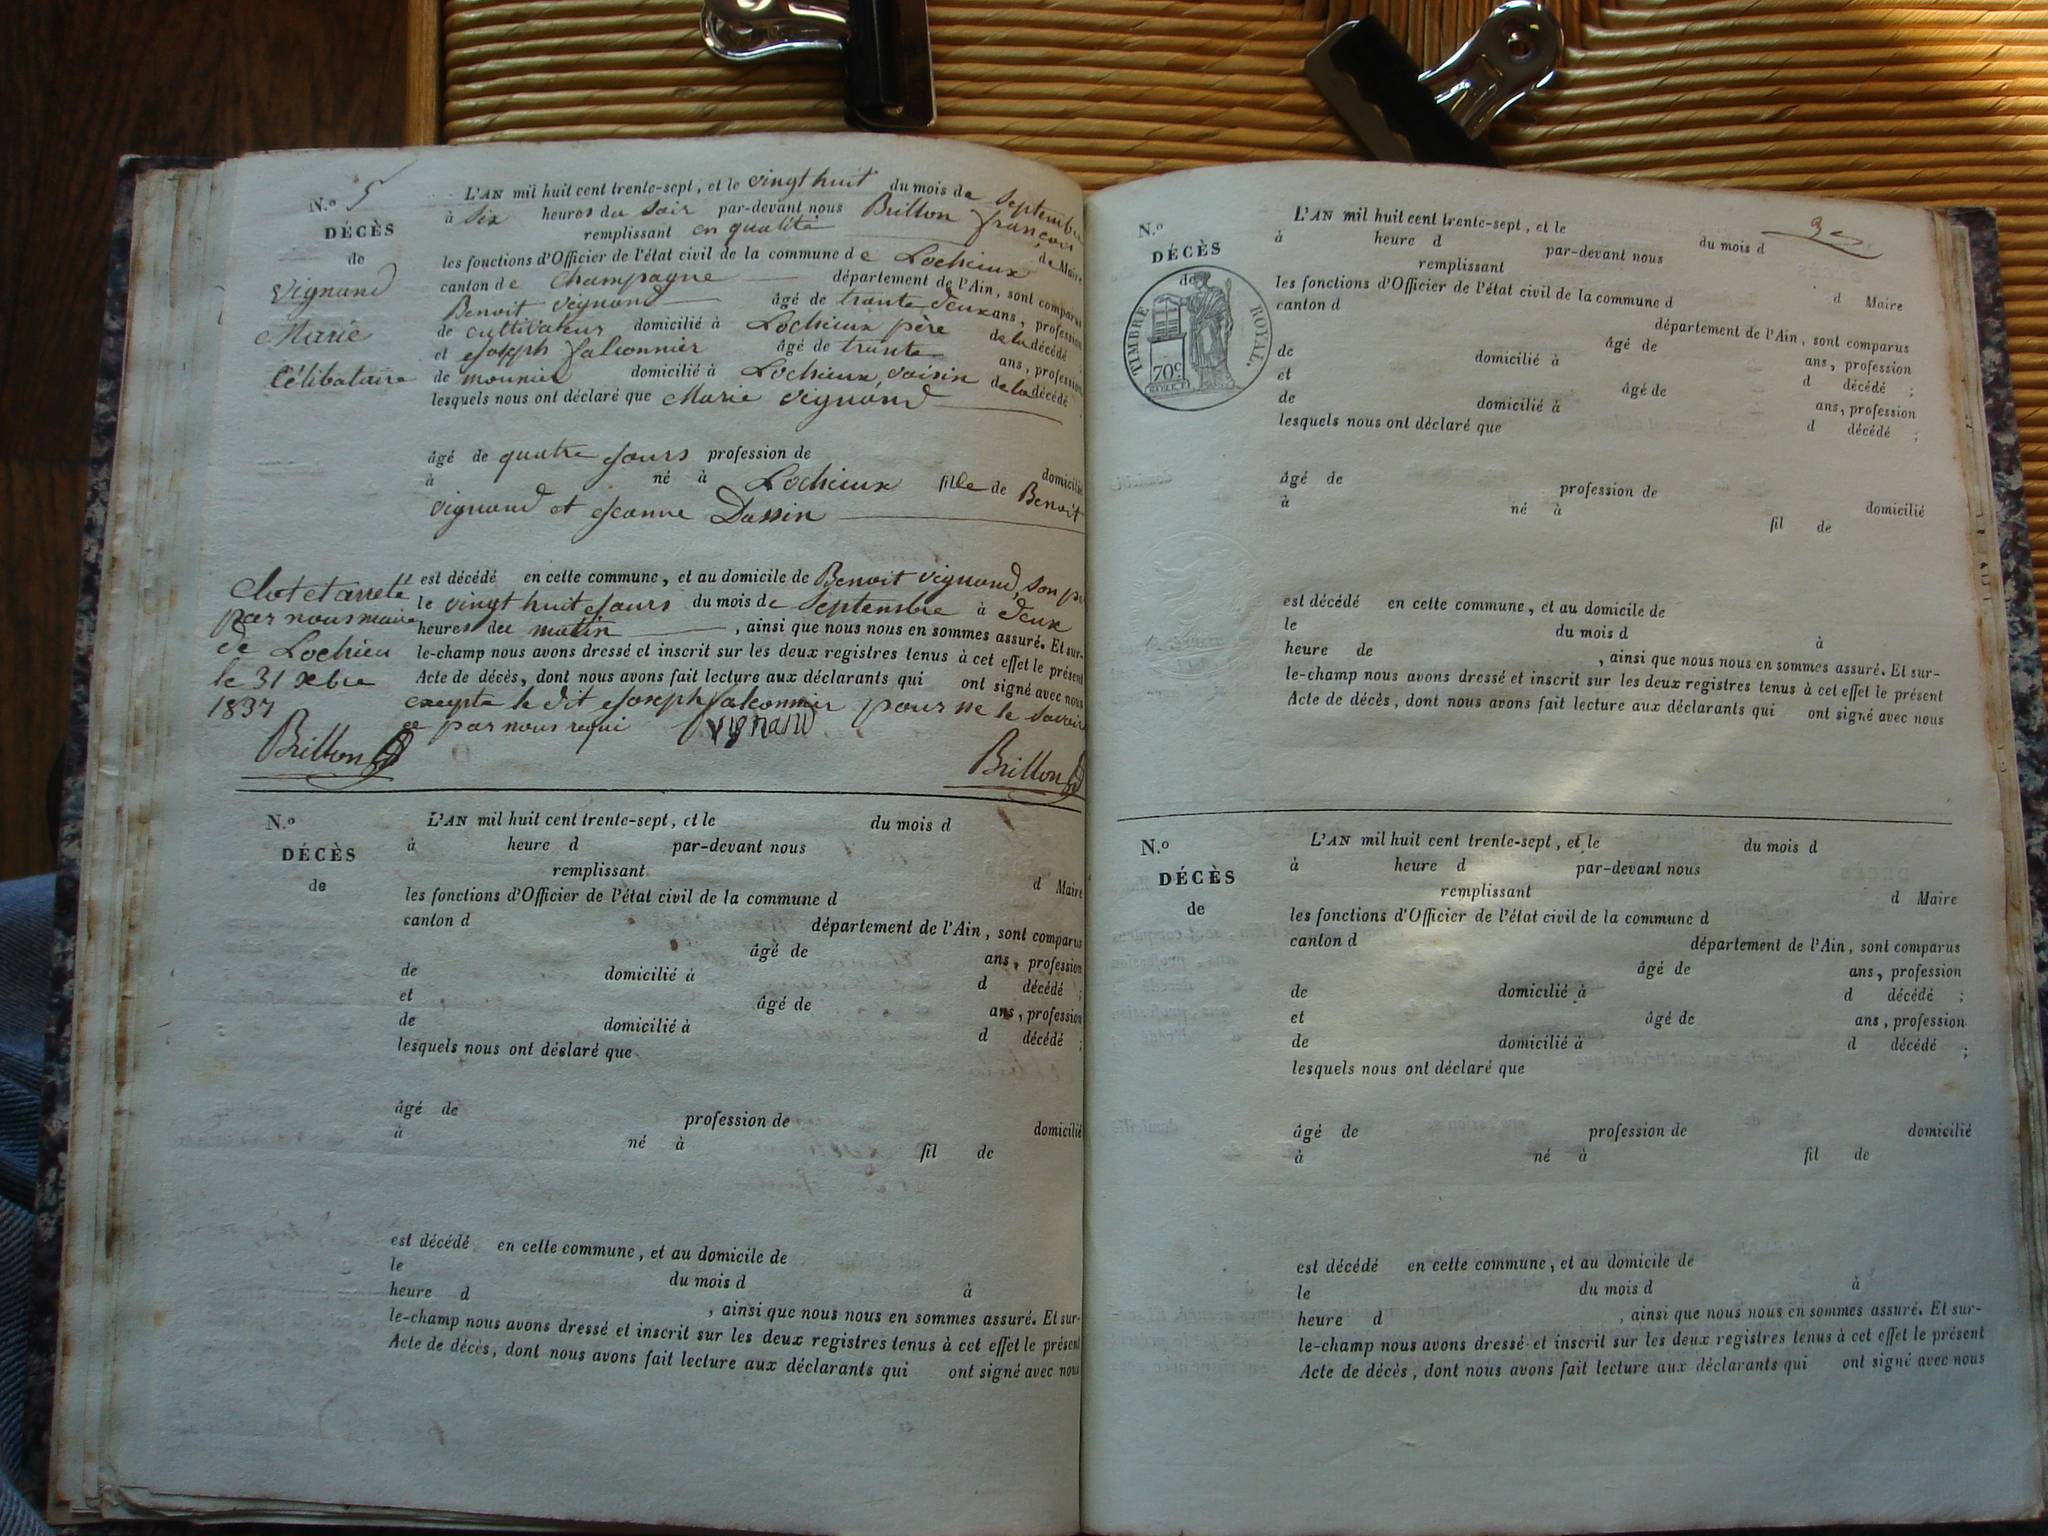 N.º 5
DÉCÈS
de
Vignand
Marie
Célibataire
L'AN mil huit cent trente-sept, et le vingt huit du mois de septembre
à six heures du soir par-devant nous Brillon françois
remplissant en qualité de Maire
les fonctions d'Officier de l'état civil de la commune de Lochieux
canton de Champagne département de l'Ain, sont comparus
Benoit Vignand âgé de trante deux ans, profession
de cultivateur domicilié à Lochieux père de la décédé ;
et Joseph falconnier âgé de trante ans, profession
de mounier domicilié à Lochieux, voisin de la décédé ;
lesquels nous ont déclaré que Marie Vignand
âgé de quatre jours profession de domicilié
à né à Lochieux fille de Benoit
Vignand et Jeanne Dassin
est décédé en cette commune, et au domicile de Benoit Vignand, son
le vingt huit jours du mois de Septembre à deux
heures deu matin , ainsi que nous nous en sommes assuré. Et sur-
le-champ nous avons dressé et inscrit sur les deux registres tenus à cet effet le présent
Acte de décès, dont nous avons fait lecture aux déclarants qui ont signé avec nous
excepte le dit Joseph falconnier pour ne le savoir
ce par nous requi Vignand
Brillon
Clot et arreté
par nous maire
de Lochieu
le 31 xbre
1837
Brillon
N.º
DÉCÈS
de
L'AN mil huit cent trente-sept, et le du mois d
à heure d par-devant nous
remplissant d Maire
les fonctions d'Officier de l'état civil de la commune d
canton d département de l'Ain, sont comparus
âgé de ans, profession
de domicilié à d décédé ;
et âgé de ans, profession
de domicilié à d décédé ;
lesquels nous ont déclaré que
âgé de profession de domicilié
à né à fil de
est décédé en cette commune, et au domicile de
le du mois d à
heure d , ainsi que nous nous en sommes assuré. Et sur-
le-champ nous avons dressé et inscrit sur les deux registres tenus à cet effet le présent
Acte de décès, dont nous avons fait lecture aux déclarants qui ont signé avec nous
N.º
DÉCÈS
de
TIMBRE ROYAL.
70c
L'AN mil huit cent trente-sept, et le du mois d
à heure d par-devant nous
remplissant d Maire
les fonctions d'Officier de l'état civil de la commune d
canton d département de l'Ain, sont comparus
âgé de ans, profession
de domicilié à d décédé ;
et âgé de ans, profession
de domicilié à d décédé ;
lesquels nous ont déclaré que
âgé de profession de domicilié
à né à fil de
est décédé en cette commune, et au domicile de
le du mois d à
heure de , ainsi que nous nous en sommes assuré. Et sur-
le-champ nous avons dressé et inscrit sur les deux registres tenus à cet effet le présent
Acte de décès, dont nous avons fait lecture aux déclarants qui ont signé avec nous
N.º
DÉCÈS
de
L'AN mil huit cent trente-sept, et le du mois d
à heure d par-devant nous
remplissant d Maire
les fonctions d'Officier de l'état civil de la commune d
canton d département de l'Ain, sont comparus
âgé de ans, profession
de domicilié à d décédé ;
et âgé de ans, profession
de domicilié à d décédé ;
lesquels nous ont déclaré que
âgé de profession de domicilié
à né à fil de
est décédé en cette commune, et au domicile de
le du mois d à
heure d , ainsi que nous nous en sommes assuré. Et sur-
le-champ nous avons dressé et inscrit sur les deux registres tenus à cet effet le présent
Acte de décès, dont nous avons fait lecture aux déclarants qui ont signé avec nous